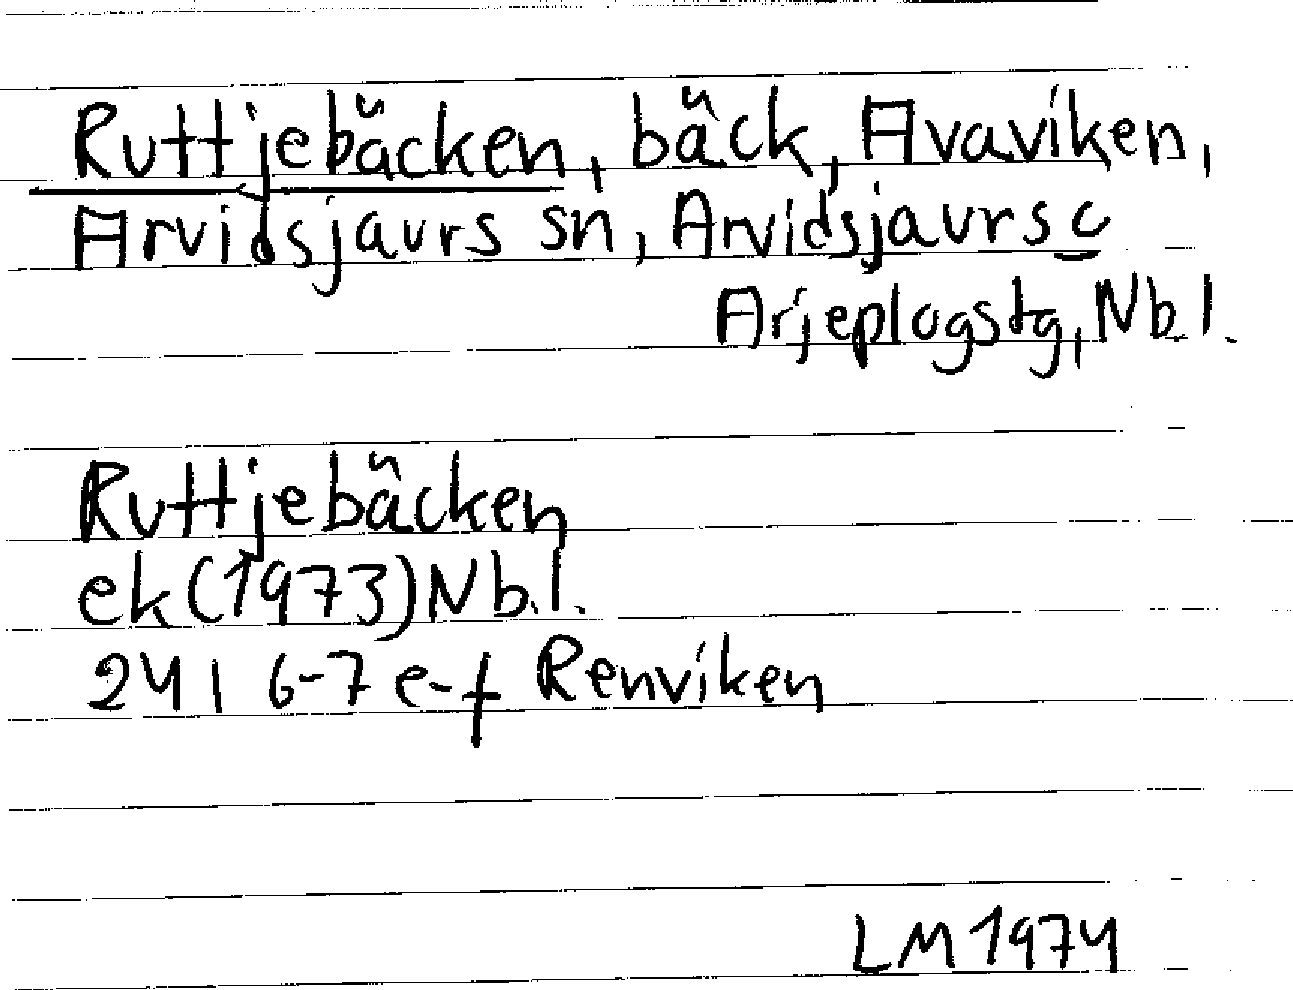 Ruttjebäcken, bäck, Avaviken,
Arvidsjaurs sn, Arvidsjaurs o
Arjeplogs tg, Nb.l.
Ruttjebäcken
ek (1973) Nb.l.
24 I 6-7 e-f Renviken
LM 1974